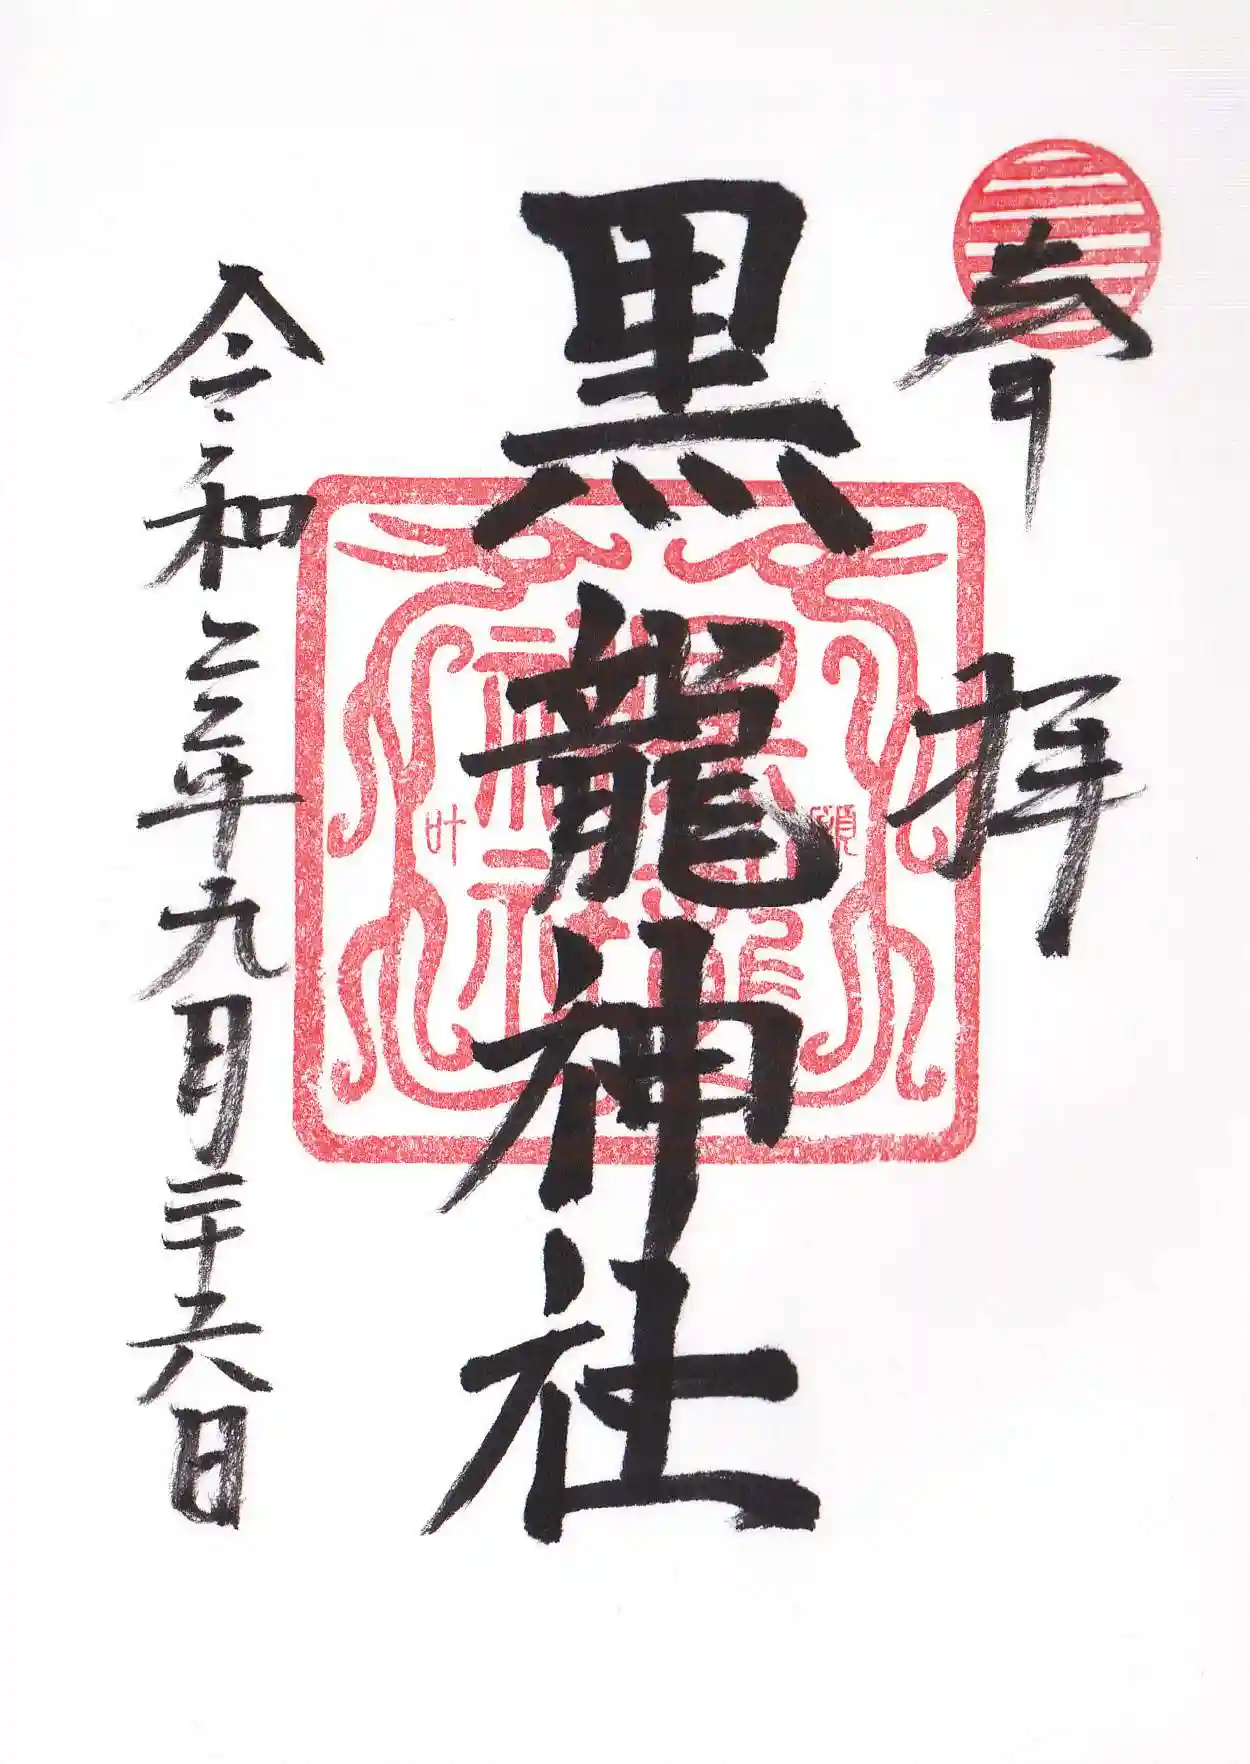 奉拝
黒龍神社
願
叶
令和三年九月二十六日